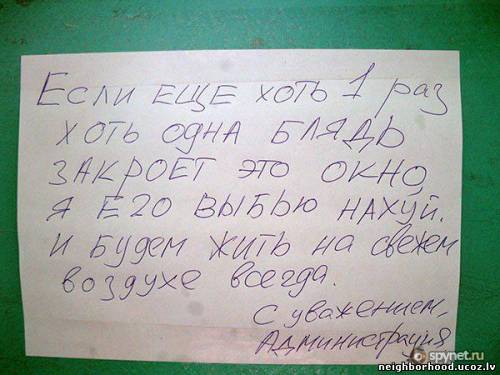 Если еще хоть 1 раз
хоть одна блядь
закроет это окно,
я его выбью нахуй.
и будем жить на свежем
воздухе всегда.
С уважением,
Администрация
spynet.ru
neighborhood.ucoz.lv